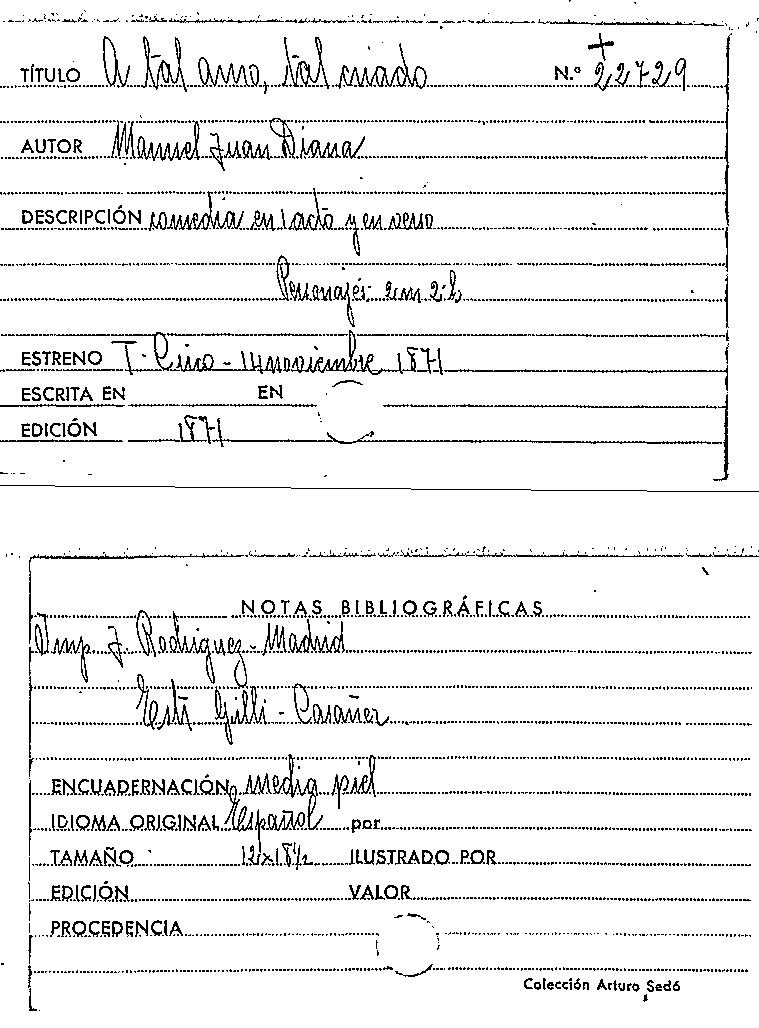 TÍTULO A tal amo, tal criado N.º 22729
AUTOR Manuel Juan Diana
DESCRIPCIÓN comedia en 1 acto y en verso
Personajes: 2 m 2 h
ESTRENO T. Circo - 14 noviembre 1871
ESCRITA EN EN
EDICIÓN 1871
NOTAS BIBLIOGRÁFICAS
Imp. J. Rodriguez - Madrid
Gilli -
ENCUADERNACIÓN media piel
IDIOMA ORIGINAL Español por
TAMAÑO 12 x 18 1/2 ILUSTRADO POR
EDICIÓN VALOR
PROCEDENCIA
Colección Arturo Sedó